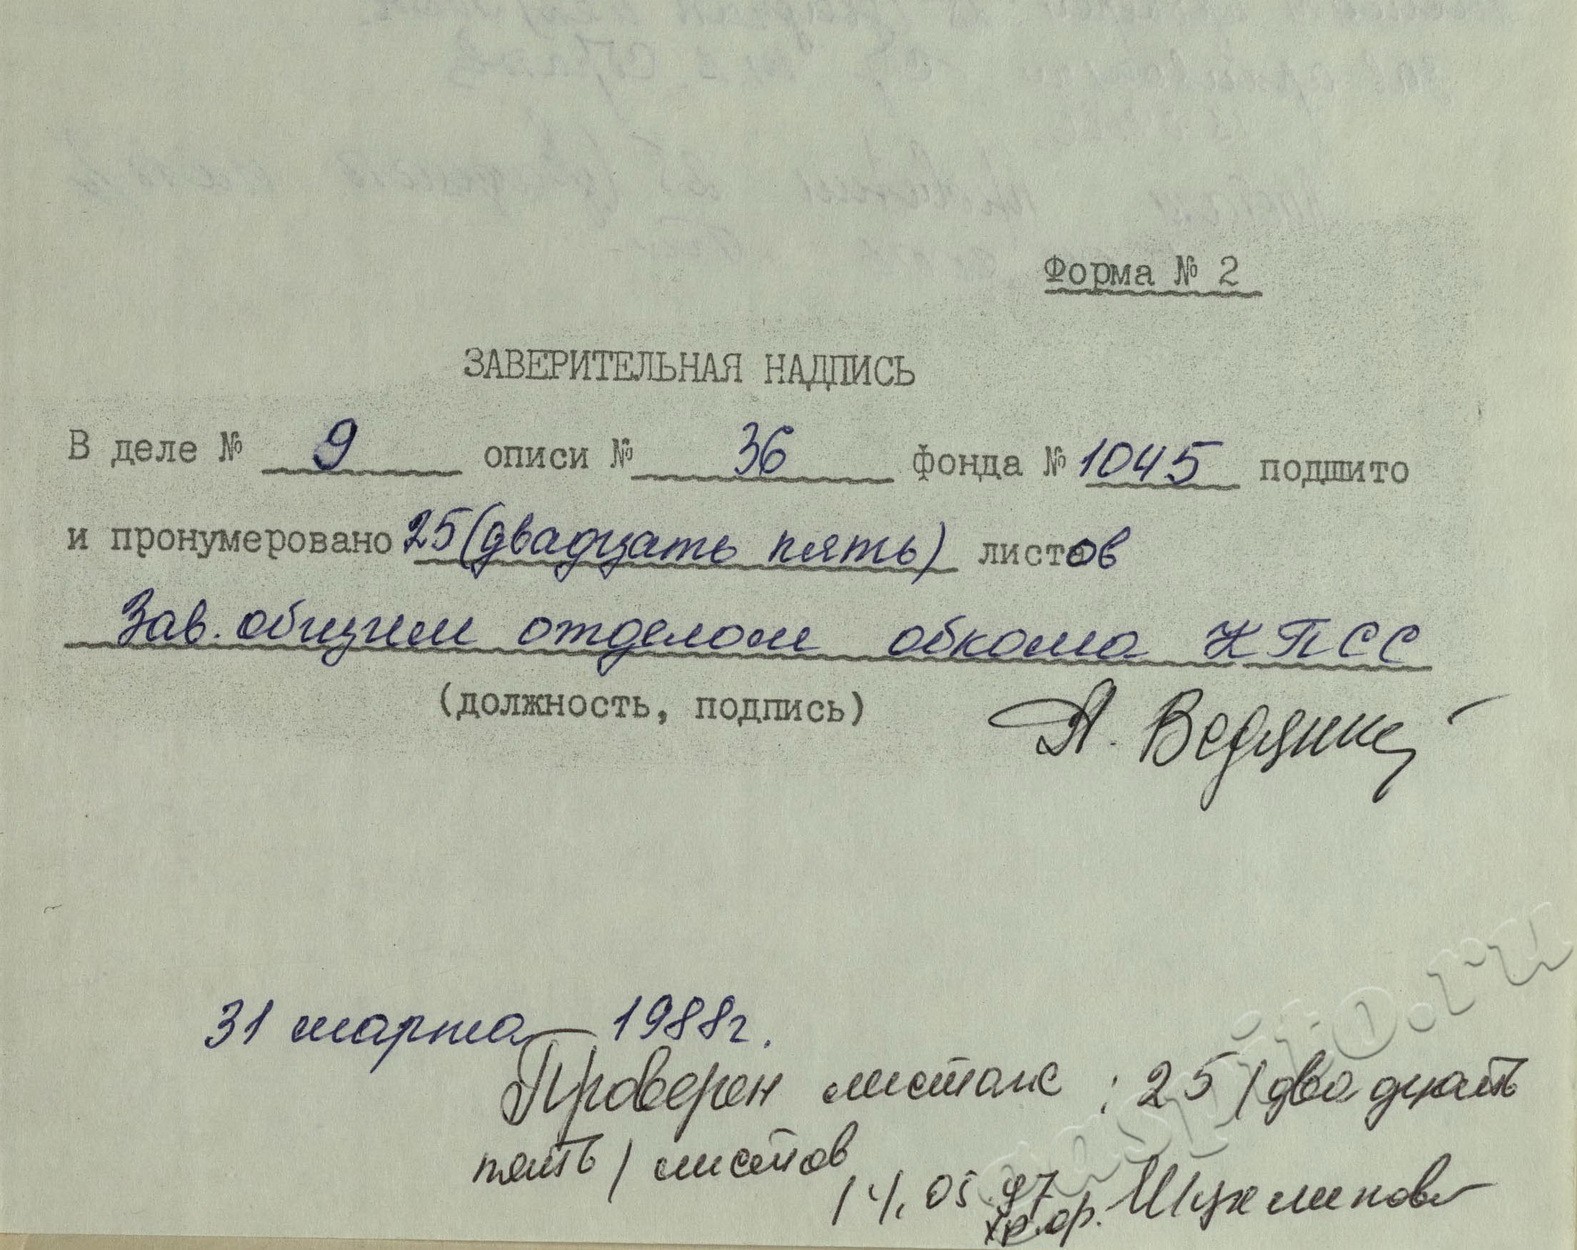 Форма № 2
ЗАВЕРИТЕЛЬНАЯ НАДПИСЬ
В деле № 9 описи № 36 фонда № 1045 подшито
и пронумеровано 25 (двадцать пять) листов
Зав. общим отделом обкома КПСС
(должность, подпись)
А.
31 марта 1988г.
Проверен листаж : 25 /двадцать
пять/ листов
14.05.97
хр.